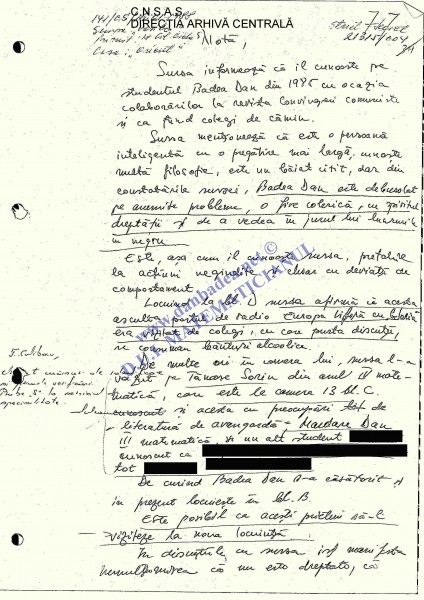 C.N.S.A.S.
DIRECȚIA ARHIVĂ CENTRALĂ
Strict secret
Casa: "Orient"
Notă,
Sursa informează că îl cunoaște pe
studentul Badea Dan din 1985 cu ocazia
colaborărilor la revista Convingeri comuniste
și ca fiind colegi de cămin.
Sursa menționează că este o persoană
inteligentă cu o pregătire mai largă, cunoaște
multă filozofie, este un băiat citit, dar din
constatările sursei, Badea Dan este debusolat
pe anumite probleme, o fire colerică, cu spiritul
dreptății și de a vedea în jurul lui lucrurile
în negru
Este, așa cum îl cunoaște sursa, pretabil
la acțiuni negîndite și chiar cu deviații de
comportament.
Locuind la bl. D sursa afirmă că acesta
asculta postul de radio Europa liberă, că
era vizitat de colegi, cu care purta discuții,
se consumau băuturi alcoolice.
De multe ori în camera lui, sursa l-a
văzut pe Tănase Sorin din anul IV mate-
matică, care este la camera 13 bl. C.
cunoscut și acesta cu preocupări de
literatură de avangardă - Mardare Dan
III matematică, și un alt student
cunoscut ca
tot
De curînd Badea Dan s-a căsătorit și
în prezent locuiește în bl. B.
Este posibil ca acești prieteni să-l
viziteze la noua locuință.
În discuțiile cu sursa își manifesta
nemulțumirea că nu este dreptate, că
www.danbadea.net ©
D.U.I. "MATEMATICIANUL"